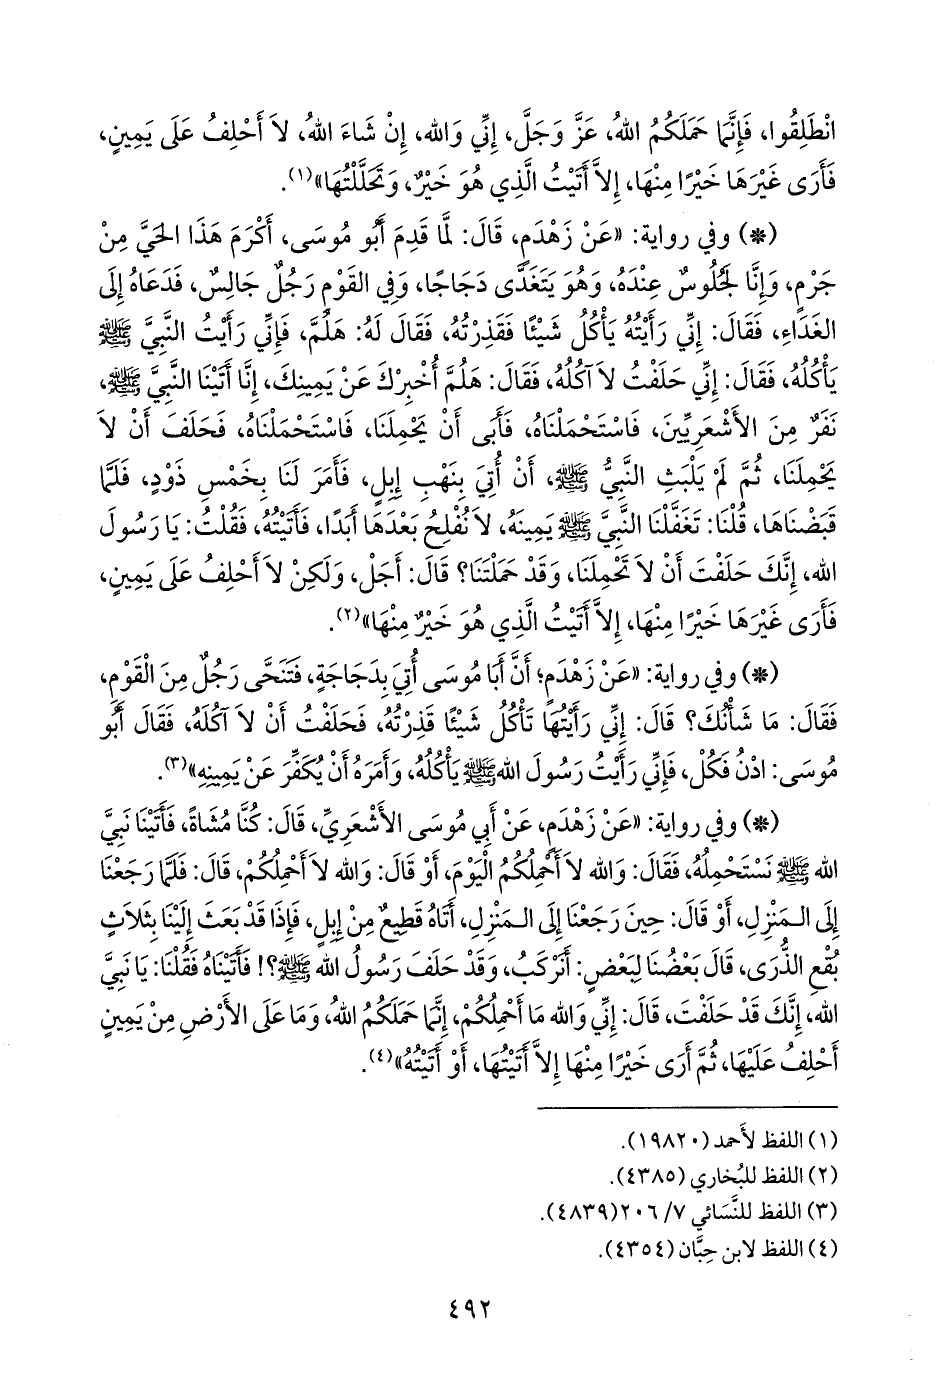 انْطَلِقُوا، فَإِنَّمَا حَمَلَكُمُ اللهُ، عَزَّ وَجَلَّ، إِنِّي وَالله، إِنْ شَاءَ اللهُ، لاَ أَحْلِفُ عَلَى يَمِينٍ،
فَأَرَى غَيْرَهَا خَيْرًا مِنْهَا، إِلاَّ أَتَيْتُ الَّذِي هُوَ خَيْرٌ، وَتَحَلَّلْتُهَا»(١).
(*) وفي رواية: «عَنْ زَهْدَمٍ، قَالَ: لَمَّا قَدِمَ أَبُو مُوسَى، أَكْرَمَ هَذَا الحَيَّ مِنْ
جَرْمٍ، وَإِنَّا لَجُلُوسٌ عِنْدَهُ، وَهُوَ يَتَغَدَّى دَجَاجًا، وَفِي القَوْمِ رَجُلٌ جَالِسٌ، فَدَعَاهُ إِلَى
الغَدَاءِ، فَقَالَ: إِنِّي رَأَيْتُهُ يَأْكُلُ شَيْئًا فَقَذِرْتُهُ، فَقَالَ لَهُ: هَلُمَّ، فَإِنِّي رَأَيْتُ النَّبِيَّ ﷺ
يَأْكُلُهُ، فَقَالَ: إِنِّي حَلَفْتُ لاَ آكُلُهُ، فَقَالَ: هَلُمَّ أُخْبِرْكَ عَنْ يَمِينِكَ، إِنَّا أَتَيْنَا النَّبِيَّ ﷺ،
نَفَرٌ مِنَ الأَشْعَرِيِّينَ، فَاسْتَحْمَلْنَاهُ، فَأَبَى أَنْ يَحْمِلَنَا، فَاسْتَحْمَلْنَاهُ، فَحَلَفَ أَنْ لاَ
يَحْمِلَنَا، ثُمَّ لَمْ يَلْبَثِ النَّبِيُّ ﷺ، أَنْ أُتِيَ بِنَهْبِ إِبِلٍ، فَأَمَرَ لَنَا بِخَمْسِ ذَوْدٍ، فَلَمَّا
قَبَضْنَاهَا، قُلْنَا: تَغَفَّلْنَا النَّبِيَّ ﷺ يَمِينَهُ، لاَ نُفْلِحُ بَعْدَهَا أَبَدًا، فَأَتَيْتُهُ، فَقُلْتُ: يَا رَسُولَ
الله، إِنَّكَ حَلَفْتَ أَنْ لاَ تَحْمِلَنَا، وَقَدْ حَمَلْتَنَا؟ قَالَ: أَجَلْ، وَلَكِنْ لاَ أَحْلِفُ عَلَى يَمِينٍ،
فَأَرَى غَيْرَهَا خَيْرًا مِنْهَا، إِلاَّ أَتَيْتُ الَّذِي هُوَ خَيْرٌ مِنْهَا»(٢).
(*) وفي رواية: «عَنْ زَهْدَمٍ؛ أَنَّ أَبَا مُوسَى أُتِيَ بِدَجَاجَةٍ، فَتَنَحَّى رَجُلٌ مِنَ الْقَوْمِ،
فَقَالَ: مَا شَأْنُكَ؟ قَالَ: إِنِّي رَأَيْتُهَا تَأْكُلُ شَيْئًا قَذِرْتُهُ، فَحَلَفْتُ أَنْ لاَ آكُلَهُ، فَقَالَ أَبُو
مُوسَى: ادْنُ فَكُلْ، فَإِنِّي رَأَيْتُ رَسُولَ الله ﷺ يَأْكُلُهُ، وَأَمَرَهُ أَنْ يُكَفِّرَ عَنْ يَمِينِهِ»(٣).
(*) وفي رواية: «عَنْ زَهْدَمٍ، عَنْ أَبِي مُوسَى الأَشْعَرِيِّ، قَالَ: كُنَّا مُشَاةً، فَأَتَيْنَا نَبِيَّ
الله ﷺ نَسْتَحْمِلُهُ، فَقَالَ: وَالله لاَ أَحْمِلُكُمُ الْيَوْمَ، أَوْ قَالَ: وَالله لاَ أَحْمِلُكُمْ، قَالَ: فَلَمَّا رَجَعْنَا
إِلَى المَنْزِلِ، أَوْ قَالَ: حِينَ رَجَعْنَا إِلَى المَنْزِلِ، أَتَاهُ قَطِيعٌ مِنْ إِبِلٍ، فَإِذَا قَدْ بَعَثَ إِلَيْنَا بِثَلاَثٍ
بُقْعِ الذُّرَى، قَالَ بَعْضُنَا لِبَعْضٍ: أَنَرْكَبُ، وَقَدْ حَلَفَ رَسُولُ الله ﷺ؟! فَأَتَيْنَاهُ فَقُلْنَا: يَا نَبِيَّ
الله، إِنَّكَ قَدْ حَلَفْتَ، قَالَ: إِنِّي وَالله مَا أَحْمِلُكُمْ، إِنَّمَا حَمَلَكُمُ اللهُ، وَمَا عَلَى الأَرْضِ مِنْ يَمِينٍ
أَحْلِفُ عَلَيْهَا، ثُمَّ أَرَى خَيْرًا مِنْهَا إِلاَّ أَتَيْتُهَا، أَوْ أَتَيْتُهُ»(٤).
(١) اللفظ لأَحمد (١٩٨٢٠).
(٢) اللفظ للبُخاري (٤٣٨٥).
(٣) اللفظ للنَّسَائي ٧/ ٢٠٦(٤٨٣٩).
(٤) اللفظ لابن حِبَّان (٤٣٥٤).
٤٩٢